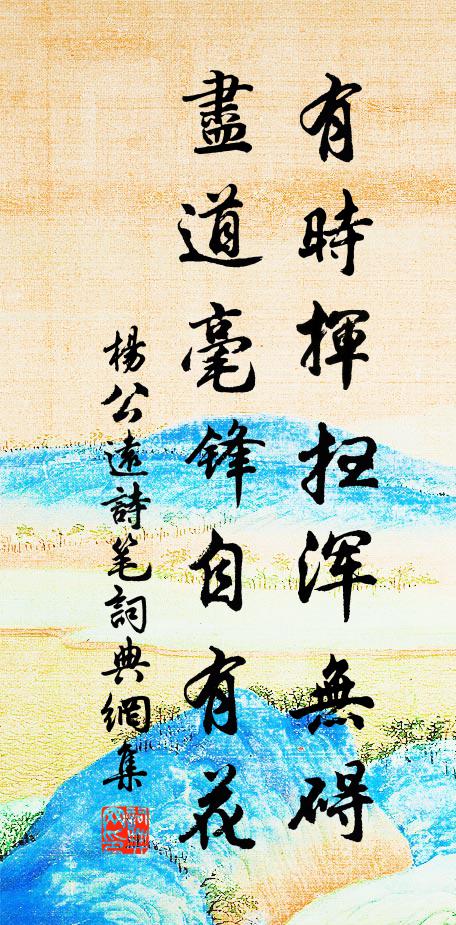 有時揮扫浑無碍
盡道毫鋒自有花
楊公遠詩笔詞典網集